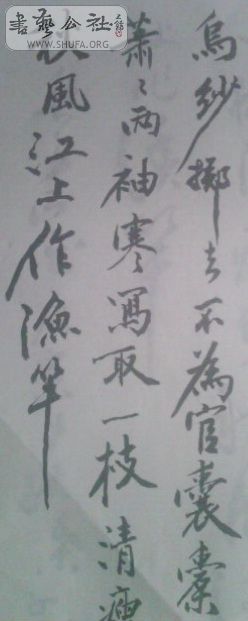 烏紗擲去不為官囊橐
蕭〻兩袖寒寫取一枝清瘦
秋風江上作漁竿
書藝公社
WWW.SHUFA.ORG